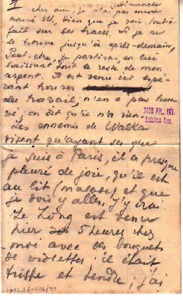 cher ami, je n'ai pas encore
trouvé W., bien que je sois tout à
fait sur ses traces. Si je ne
le trouve jusqu'à après-demain,
Peut-être, je partirai en lui
laissant tout le reste de mon
argent. Il est venu ici espé-
rant trouver
des travaux, n'en a pas trou-
vé, on dit qu'il n'a rien.
Les ennemis de Walka
disent qu'ayant su que
je suis à Paris, il a presque
pleuré de joie, qu'il est
au lit (malade) et que
je dois y aller. J'y irai.
Le Long est venu
hier à 5 heures chez
moi avec des bouquets
de violettes. Il était
triste et tendre, j'ai